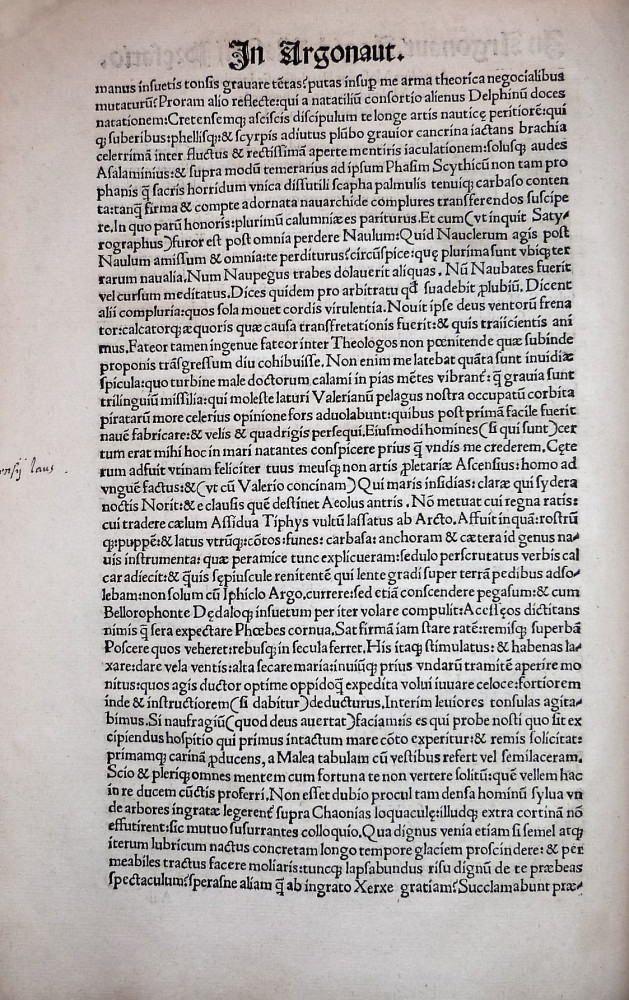 In Argonaut.
manus insuetis tonsis grauare tētas? putas insuꝑ me arma theorica negocialibus
mutaturū? Proram alio reflecte: qui a natatiliū consortio alienus Delphinū doces
natationem: Cretensemqꝫ asciscis discipulum te longe artis nauticę peritiorē: qui
qꝫ suberibus: phellisqꝫ: & scyrpis adiutus plūbo grauior cancrina iactans brachia
celerrimā inter fluctus & rectissimā aperte mentiris iaculationem: solusqꝫ audes
Asalaminius: & supra modū temerarius ad ipsum Phasim Scythicū non tam pro
phanis q̄ sacris horridum vnica dissutili scapha palmulis tenuiqꝫ carbaso conten
ta: tanq̄ firma & compte adornata nauarchide complures transferendos suscipe
re. In quo parū honoris: plurimū calumniæ es pariturus. Et cum (vt inquit Saty⸗
rographus) furor est post omnia perdere Naulum: Quid Nauclerum agis post
Naulum amissum & omnia: te perditurus? circūspice: quę plurima sunt vbiqꝫ ter
rarum naualia. Num Naupegus trabes dolauerit aliquas. Nū Naubates fuerit
vel cursum meditatus. Dices quidem pro arbitratu qd̄ suadebit ꝓlubiū. Dicent
alii compluria: quos sola mouet cordis virulentia. Nouit ipse deus ventorū frena
tor: calcatorqꝫ æquoris quæ causa transfretationis fuerit: & quis traiicientis ani
mus. Fateor tamen ingenue fateor inter Theologos non pœnitende quæ subinde
proponis trāsgressum diu cohibuisse. Non enim me latebat quāta sunt inuidiæ
spicula: quo turbine male doctorum calami in pias mētes vibrant: q̄ grauia sunt
trilinguiū missilia: qui moleste laturi Valerianū pelagus nostra occupatū corbita
piratarū more celerius opinione fors aduolabunt: quibus post primā facile fuerit
nauē fabricare: & velis & quadrigis persequi. Eiusmodi homines (si qui sunt) cer
tum erat mihi hoc in mari natantes conspicere prius q̄ vndis me crederem. Cęte
rum adfuit vtinam feliciter tuus meusqꝫ non artis ꝓletariæ Ascensius: homo ad
vnguē factus: & (vt cū Valerio concinam) Qui maris insidias: claræ qui sydera
noctis Norit: & e clausis quē destinet Aeolus antris. Nō metuat cui regna ratis:
cui tradere cælum Assidua Tiphys vultū lassatus ab Arcto. Affuit inquā: rostrū
qꝫ: puppē: & latus vtrūqꝫ: cōtos: funes: carbasa: anchoram & cætera id genus na⸗
uis instrumenta: quæ peramice tunc explicueram: sedulo perscrutatus verbis cal
car adiecit: & q̄uis sępiuscule renitentē qui lente gradi super terrā pedibus adso⸗
lebam: non solum cū Iphiclo Argo. currere: sed etiā conscendere pegasum: & cum
Bellorophonte Dędaloqꝫ insuetum per iter volare compulit: Acesseos dictitans
nimis q̄ sera expectare Phœbes cornua. Sat firmā iam stare ratē: remisqꝫ superbā
Poscere quos veheret: rebusqꝫ in secula ferret. His itaqꝫ stimulatus: & habenas la⸗
xare: dare vela ventis: alta secare maria: inuiūqꝫ prius vndarū tramitē aperire mo
nitus: quos agis ductor optime oppidoqꝫ expedita volui iuuare celoce: fortiorem
inde & instructiorem (si dabitur) deducturus. Interim leuiores tonsulas agita⸗
bimus. Si naufragiū (quod deus auertat) faciam: is es qui probe nosti quo sit ex
cipiendus hospitio qui primus intactum mare cōto experitur: & remis solicitat:
primamqꝫ carinā ꝓducens, a Malea tabulam cū vestibus refert vel semilaceram.
Scio & pleriqꝫ omnes mentem cum fortuna te non vertere solitū: quē vellem hac
in re ducem cūctis proferri. Non esset dubio procul tam densa hominū sylua vn
de arbores ingratæ legerent supra Chaonias loquaculę: illudqꝫ extra cortinā nō
effutirent: sic mutuo susurrantes colloquio. Qua dignus venia etiam si semel atqꝫ
iterum lubricum nactus concretam longo tempore glaciem proscindere: & per
meabiles tractus facere moliaris: tuncqꝫ lapsabundus risu dignū de te præbeas
spectaculum? sperasne aliam q̄ ab ingrato Xerxe gratiam? Succlamabunt præ⸗
laus.